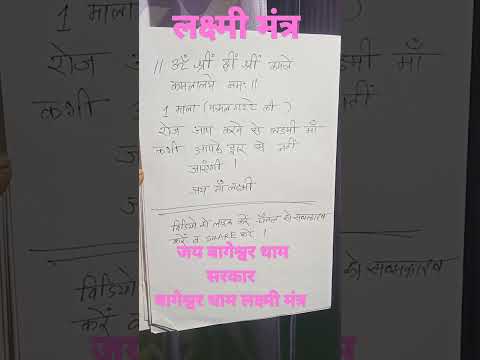 लक्ष्मी मंत्र
1 माला
रोज
माँ
कभी
नहीं
विडियो
करें
।। ॐ श्रीं ह्रीं श्रीं कमले
कमलालये नमः ।।
1 माला (कमलगट्टे की)
रोज आप करने से लक्ष्मी माँ
कभी आपके द्वार से नहीं
जाएंगी ।
जय माँ लक्ष्मी
विडियो को लाइक करें चैनल को सब्सक्राइब
करें व SHARE करें ।
जय बागेश्वर धाम
सरकार
बागेश्वर धाम लक्ष्मी मंत्र